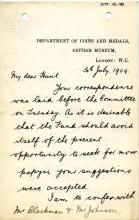 DEPARTMENT OF COINS AND MEDALS,
BRITISH MUSEUM,
LONDON: W.C.
July 1909.
My dear Hunt
Your correspondence
was laid before the Committee
on Tuesday. As it is desirable
that the Fund should avoid
itself of the present
opportunity to seek for more
papyri your suggestions
were accepted.
I am to confer with
Mr Blackman & Mr Johnson